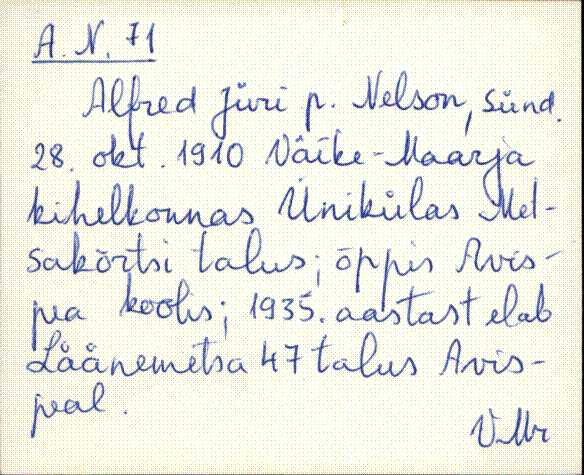 A. N. 71
Alfred Jüri p. Nelson, sünd.
28. okt. 1910 Väike-Maarja
kihelkonnas Ünikülas Met-
sakõrtsi talus; õppis Avis-
pea koolis; 1935. aastast elab
Läänemetsa 47 talus Avis-
peal.
V. Mr